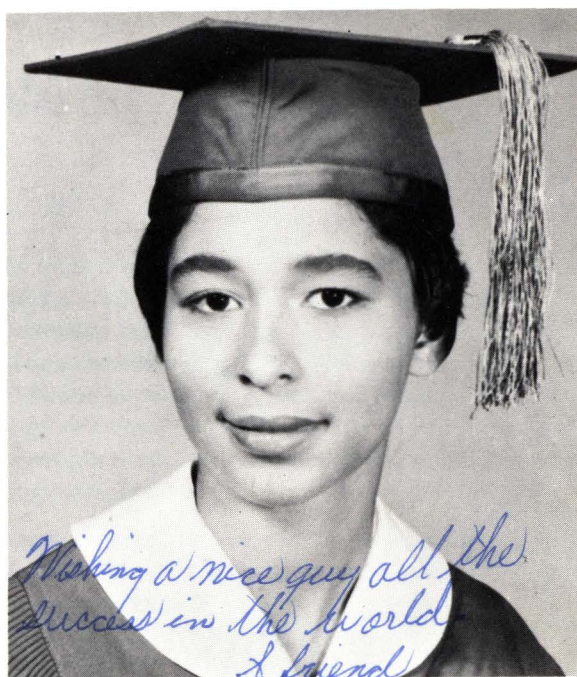 Wishing a nice guy all the
success in the world.
A friend